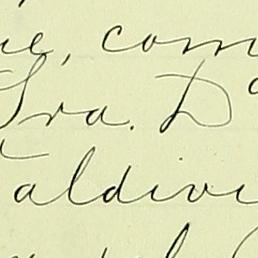 ue, com
Sra. Da
aldivi